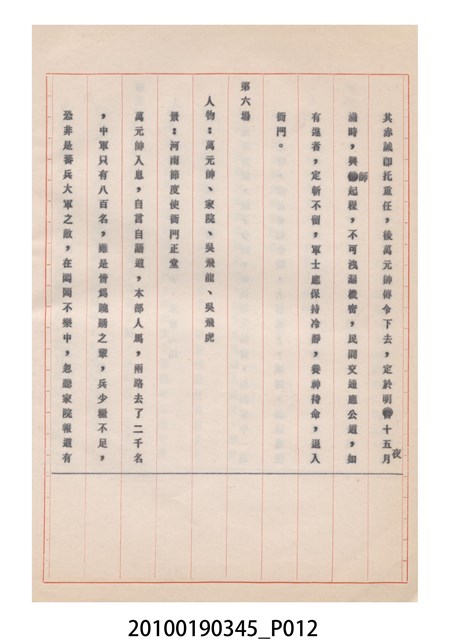 其赤誠即托重任，後萬元帥傳令下去，定於明夜十五月
滿時，興師起程，不可洩漏機密，民間交通應公道，如
有違者，定斬不留，軍士應保持冷靜，養神待命，退入
衙門。
第六場
人物：萬元帥、家院、吳飛龍、吳飛虎
景：河南節度使衙門正堂
萬元帥入息，自言自語道，本部人馬，兩路去了二千名
，中軍只有八百名，雖是皆為驍勇之輩，兵少糧不足，
恐非是番兵大軍之敵，在悶悶不樂中，忽聽家院報道有
20100190345_P012